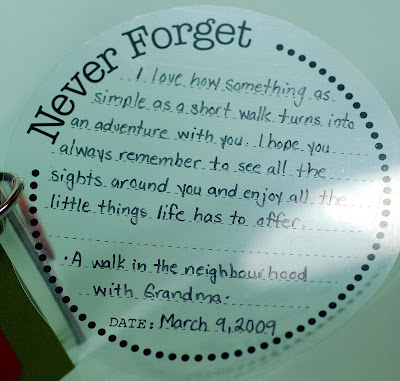 Never Forget
I love how something as
simple as a short walk turns into
an adventure with you. I hope you
always remember to see all the
sights around you and enjoy all the
little things life has to offer.
· A walk in the neighbourhood
with Grandma.
DATE: March 9, 2009